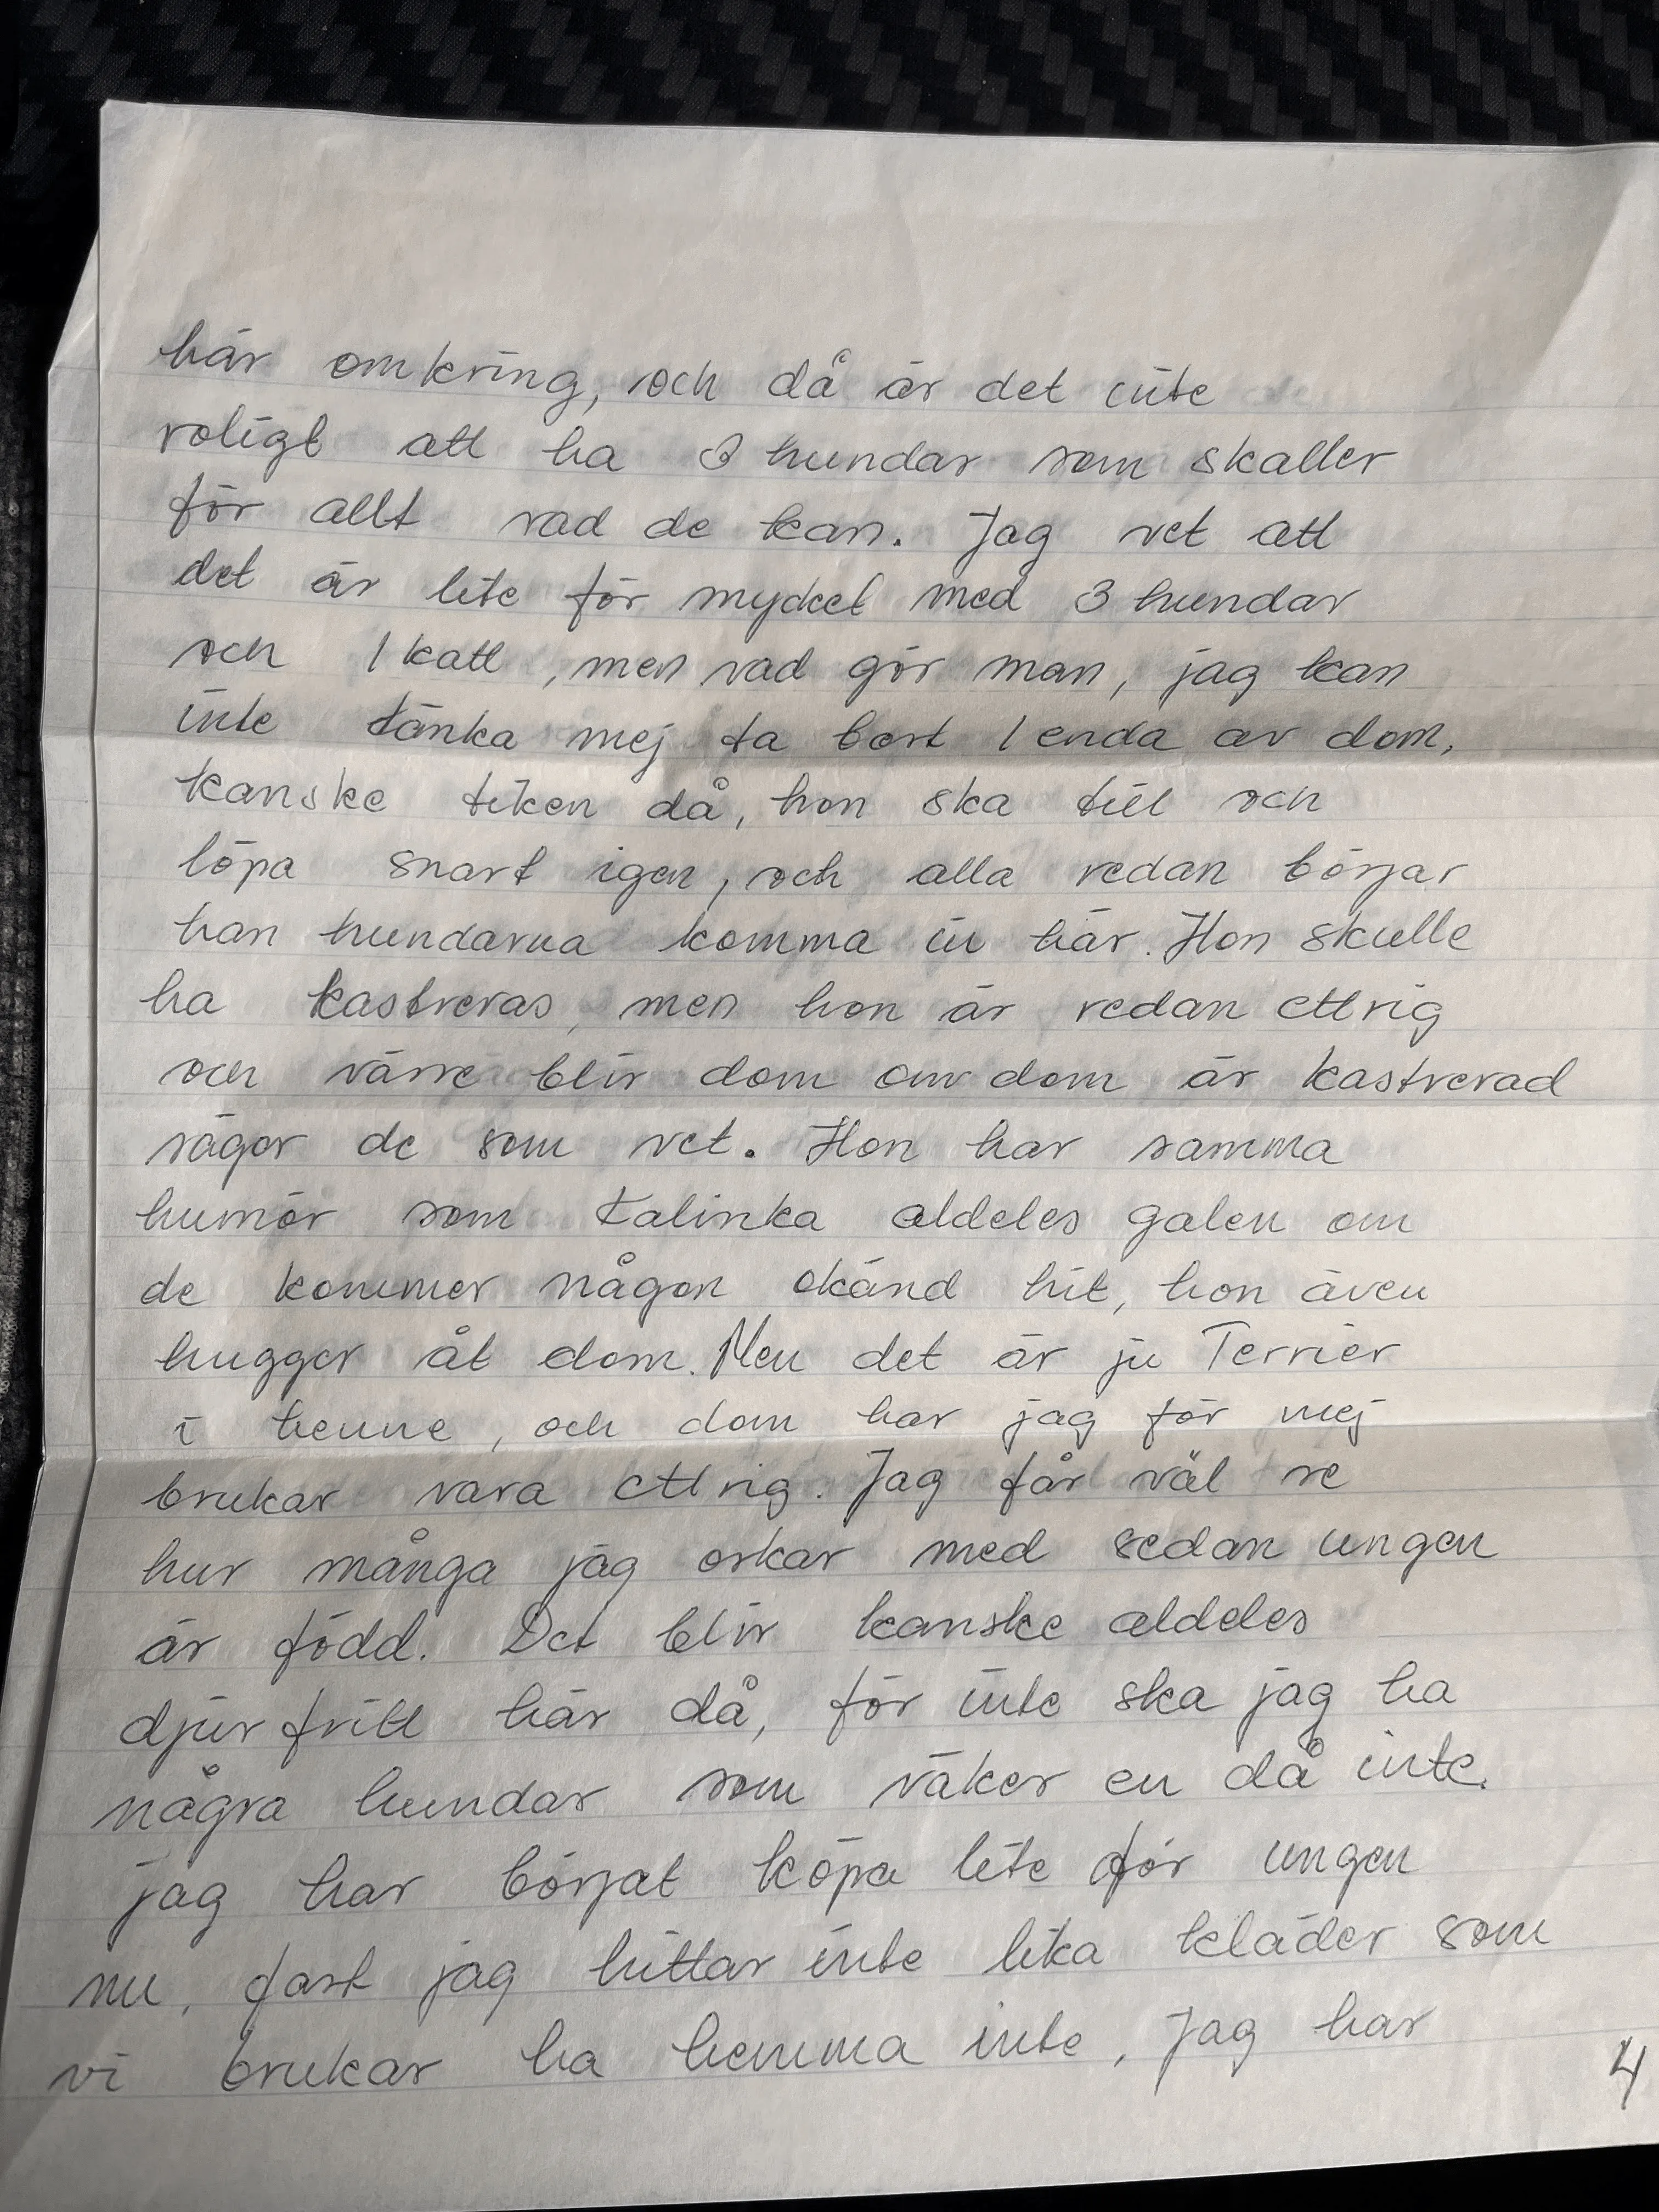 här omkring, och då är det inte
roligt att ha 3 hundar som skaller
för allt vad de kan. Jag vet att
det är lite för mycket med 3 hundar
och 1 katt, men vad gör man, jag kan
inte tänka mej ta bort 1 enda av dom,
kanske tiken då, hon ska till och
löpa snart igen, och alla redan börjar
han hundarna komma in här. Hon skulle
ha kastreras, men hon är redan ettrig
och värre blir dom om dom är kastrerad
säger de som vet. Hon har samma
humör som Kalinka aldeles galen om
de kommer någon okänd hit, hon även
hugger åt dom. Men det är ju Terrier
i henne, och dom har jag för mej
brukar vara ettrig. Jag får väl se
hur många jag orkar med sedan ungen
är född. Det blir kanske aldeles
djur fritt här då, för inte ska jag ha
några hundar som väker en då inte.
jag har börjat köpa lite för ungen
nu, fast jag hittar inte lika kläder som
vi brukar ha hemma inte, Jag har
4